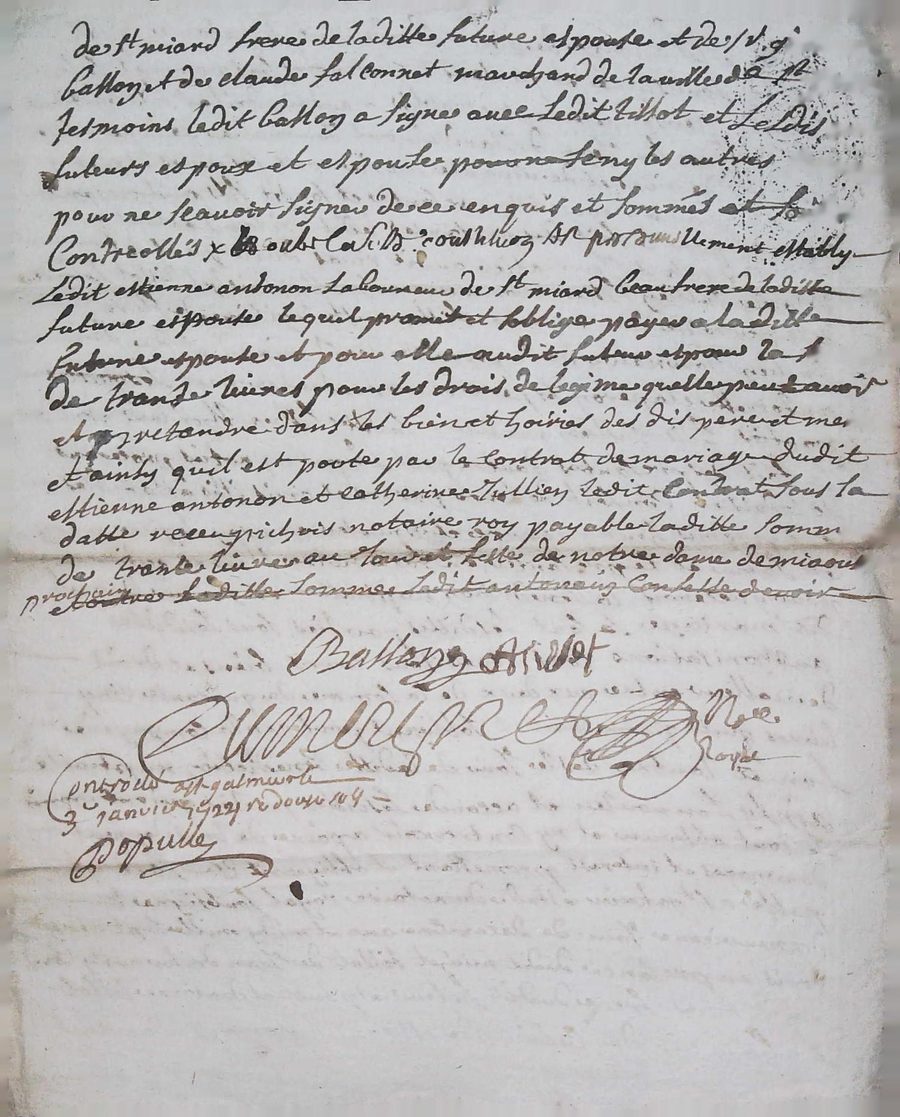 de st miard frere de laditte future espouse et de
ballon et de claude falconnet marchand de la ville
tesmoins ledit ballon a signe avec ledit tillot et lesdis
futeurs espoux et espouse les autres
pour ne scavoir signe de ce enquis et sommés
Contreollés personnellement estably
Ledit estienne antonon laboureur de st miard beau frere de laditte
future espouse lequel promet et soblige payer a laditte
future espouse et pour elle audit futeur espoux la s
de trante livres pour les drois de legime quelle peut avoir
et pretandre dans les bien et hoiries des dis pere et me
et ainsy quil est porte par le Contrat de mariage dudit
estienne antonon et catherine Jullien ledit Contrat sous la
datte receu pichois notaire roy payable laditte somm
de trante livres au jour et feste de notre dame de miaous
prochain
et outre laditte somme ledit Confesse devoir
Ballon
Nre
Royal
Controlle a st galmier le
3e janvier 1722 r douse sols
Populle